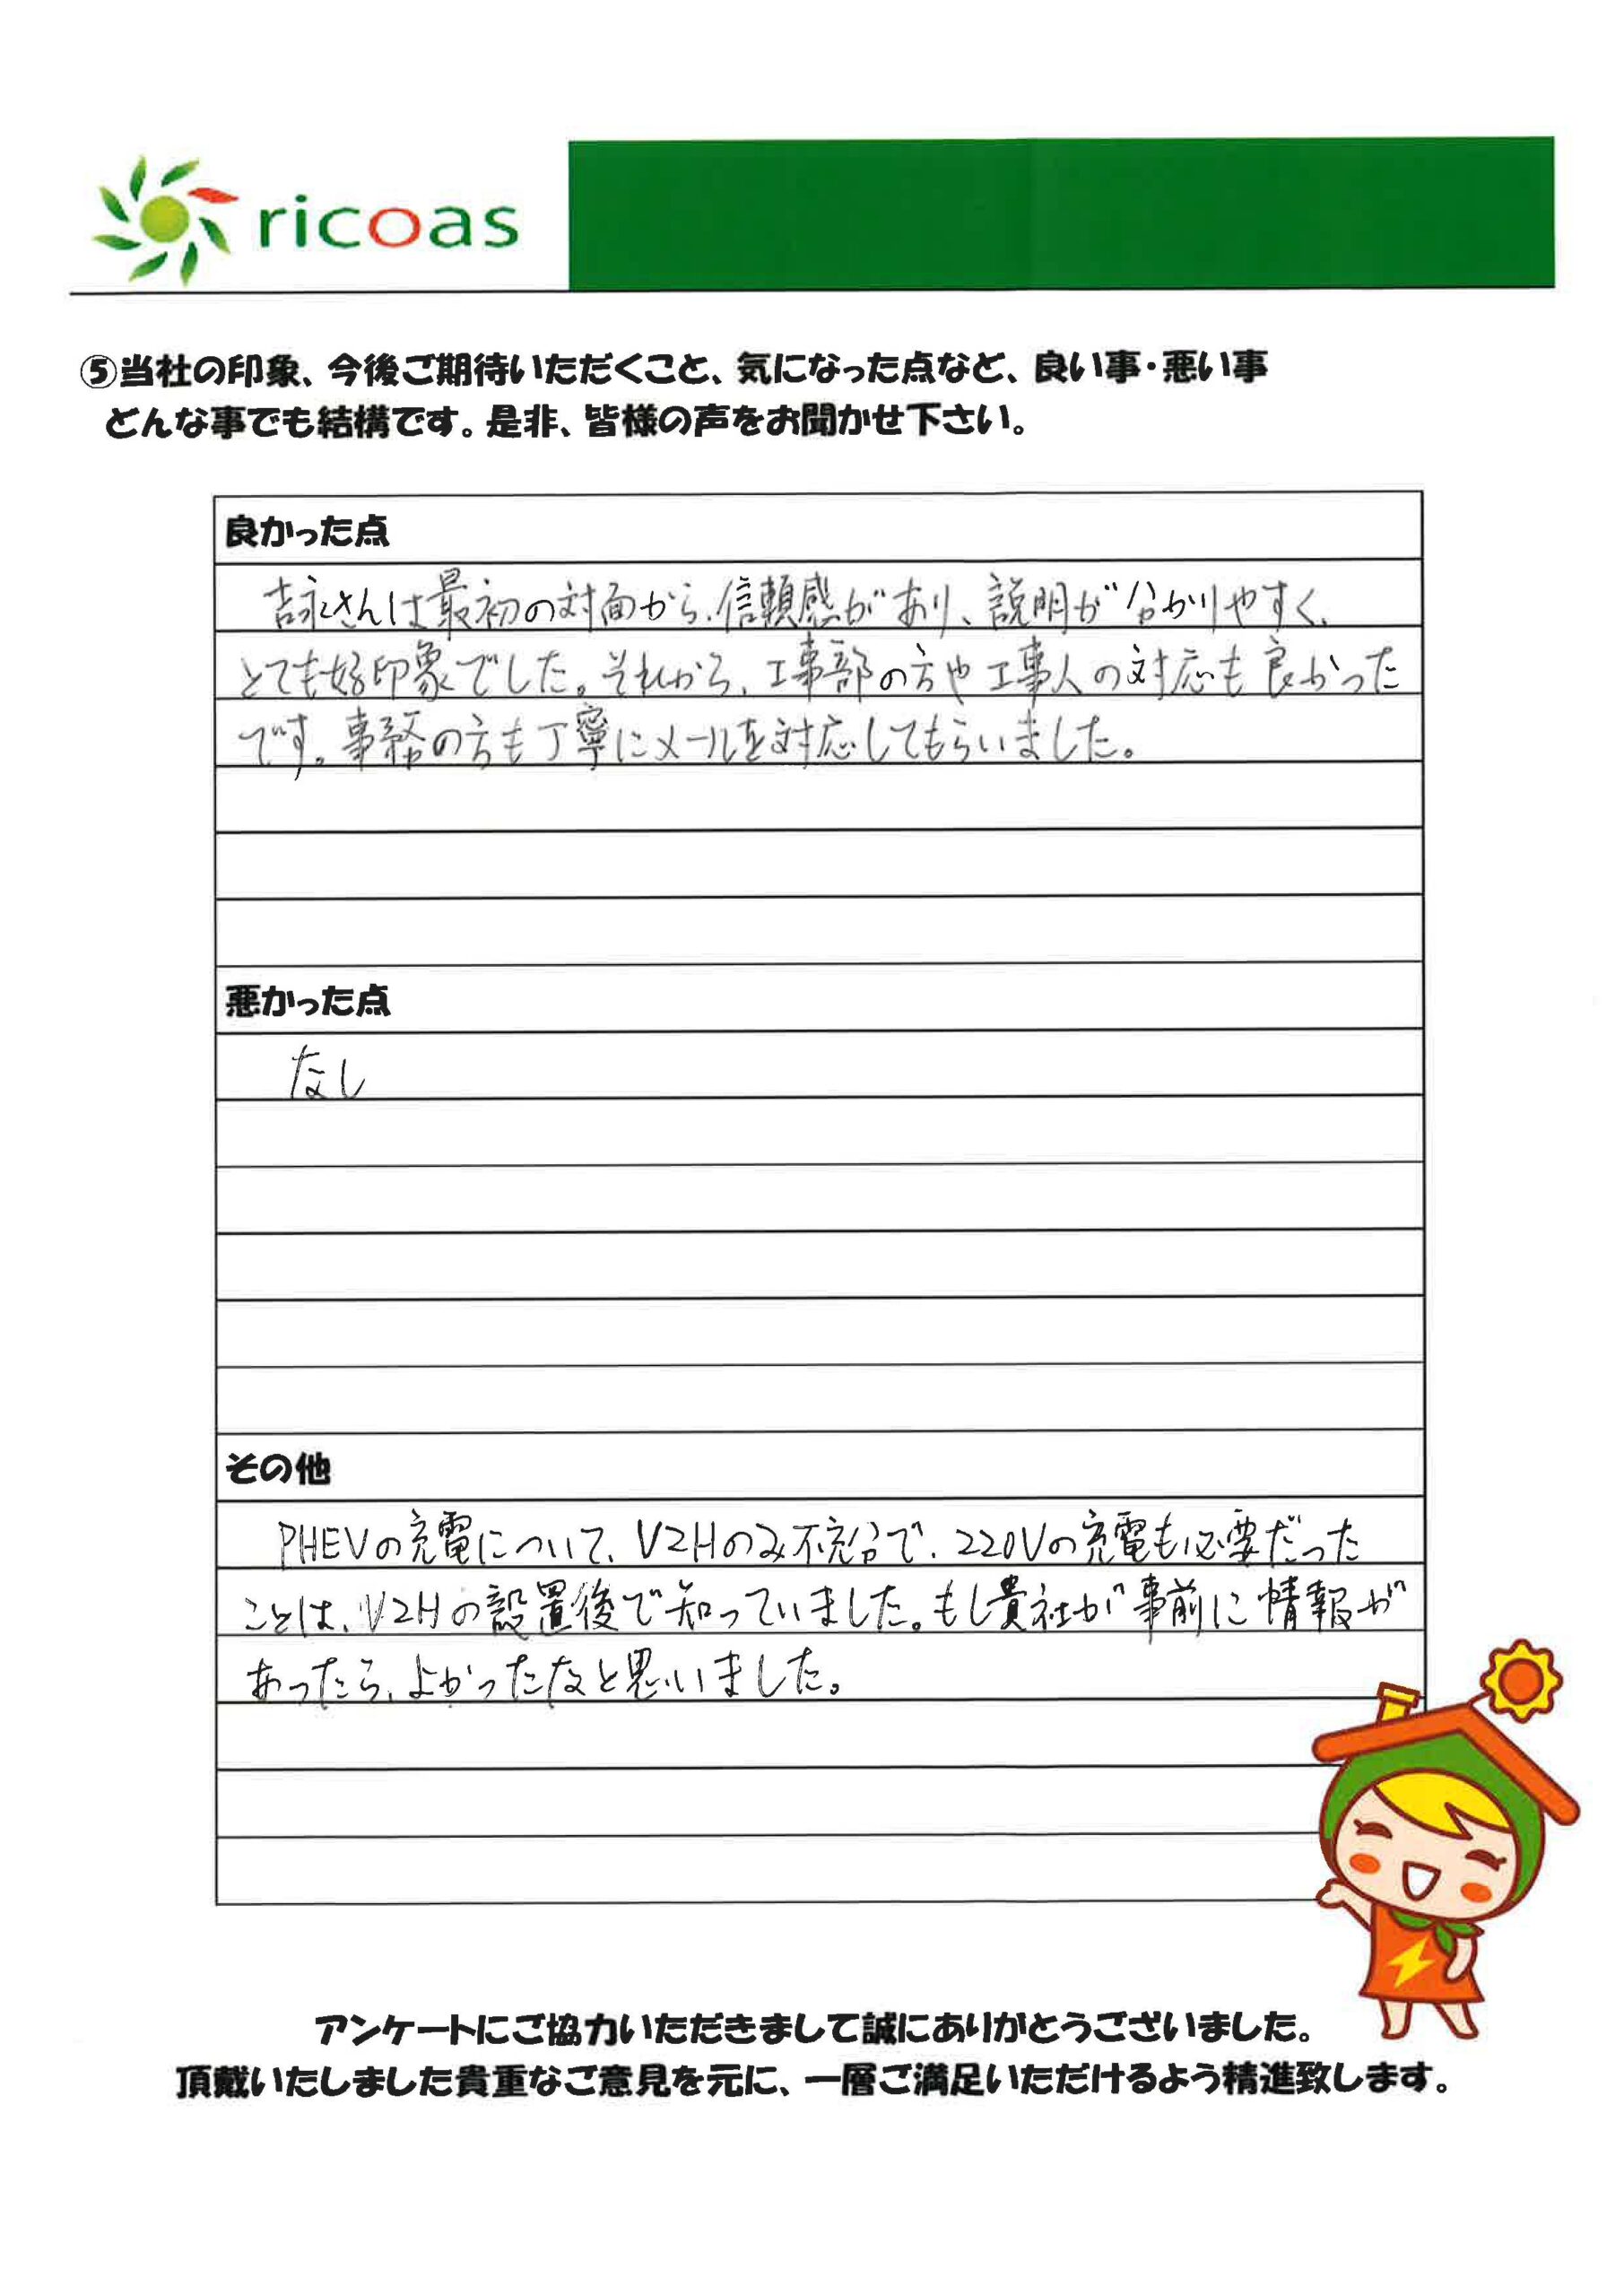 ricoas
⑤当社の印象、今後ご期待いただくこと、気になった点など、良い事・悪い事
どんな事でも結構です。是非、皆様の声をお聞かせ下さい。
良かった点
吉永さんは最初の対面から、信頼感があり、説明が分かりやすく、
とても好印象でした。それから、工事部の方や工事人の対応も良かった
です。事務の方も丁寧にメールを対応してもらいました。
悪かった点
なし
その他
PHEVの充電について、V2Hのみ不充分で、220Vの充電も必要だった
ことは、V2Hの設置後で知っていました。もし貴社が事前に情報が
あったら、よかったなと思いました。
アンケートにご協力いただきまして誠にありがとうございました。
頂戴いたしました貴重なご意見を元に、一層ご満足いただけるよう精進致します。